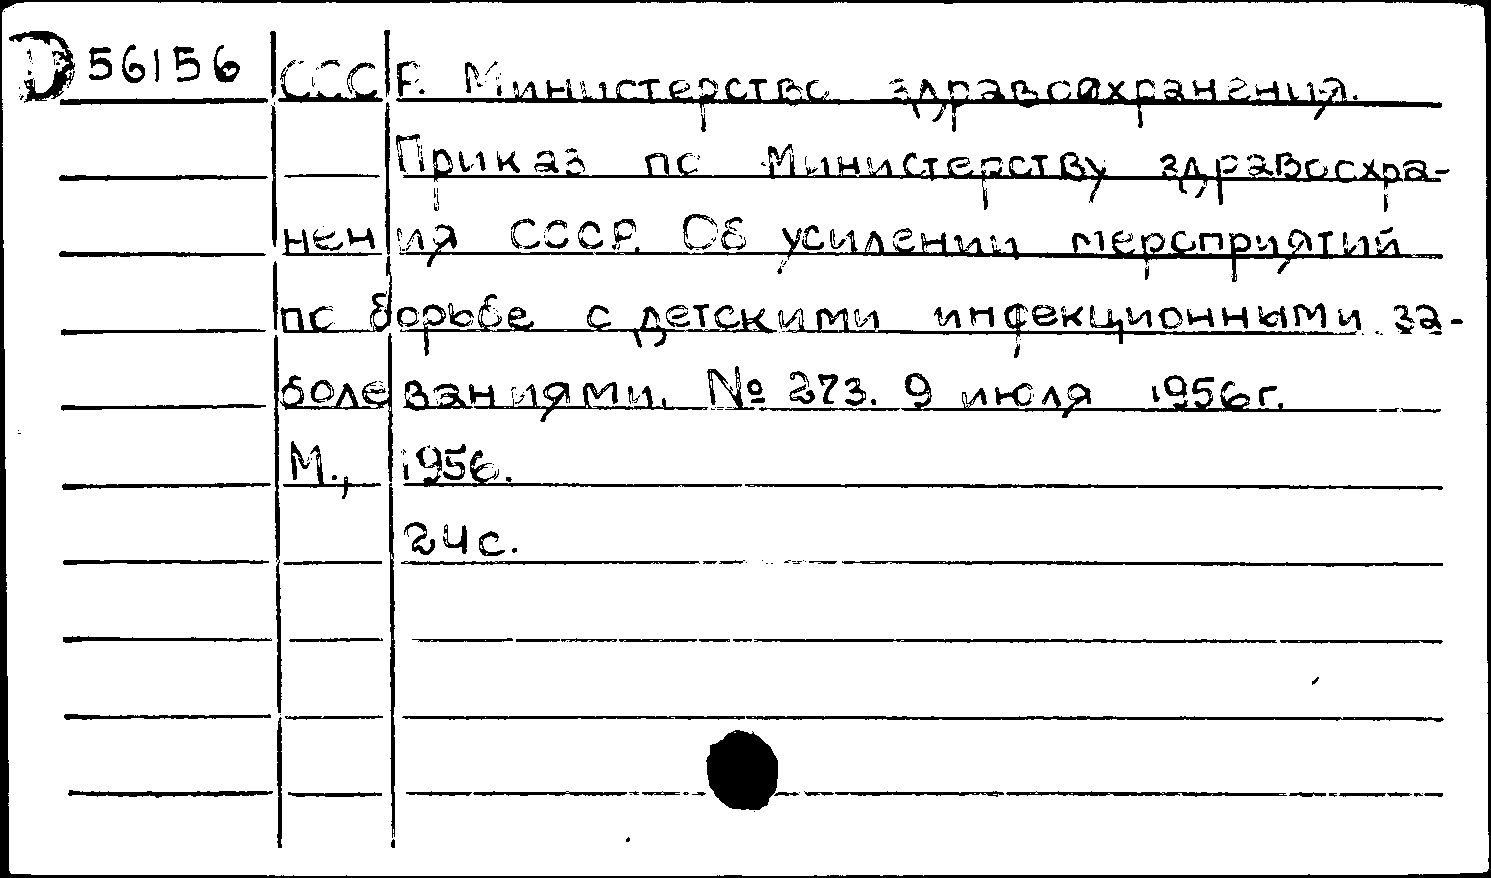 D 56156 СССР. Министерство здравоохранения.
Приказ по Министерству здравоохра-
нения СССР. Об усилении мероприятий
по борьбе с детскими инфекционными за-
болеваниями. № 273. 9 июля 1956г.
М., 1956.
24с.